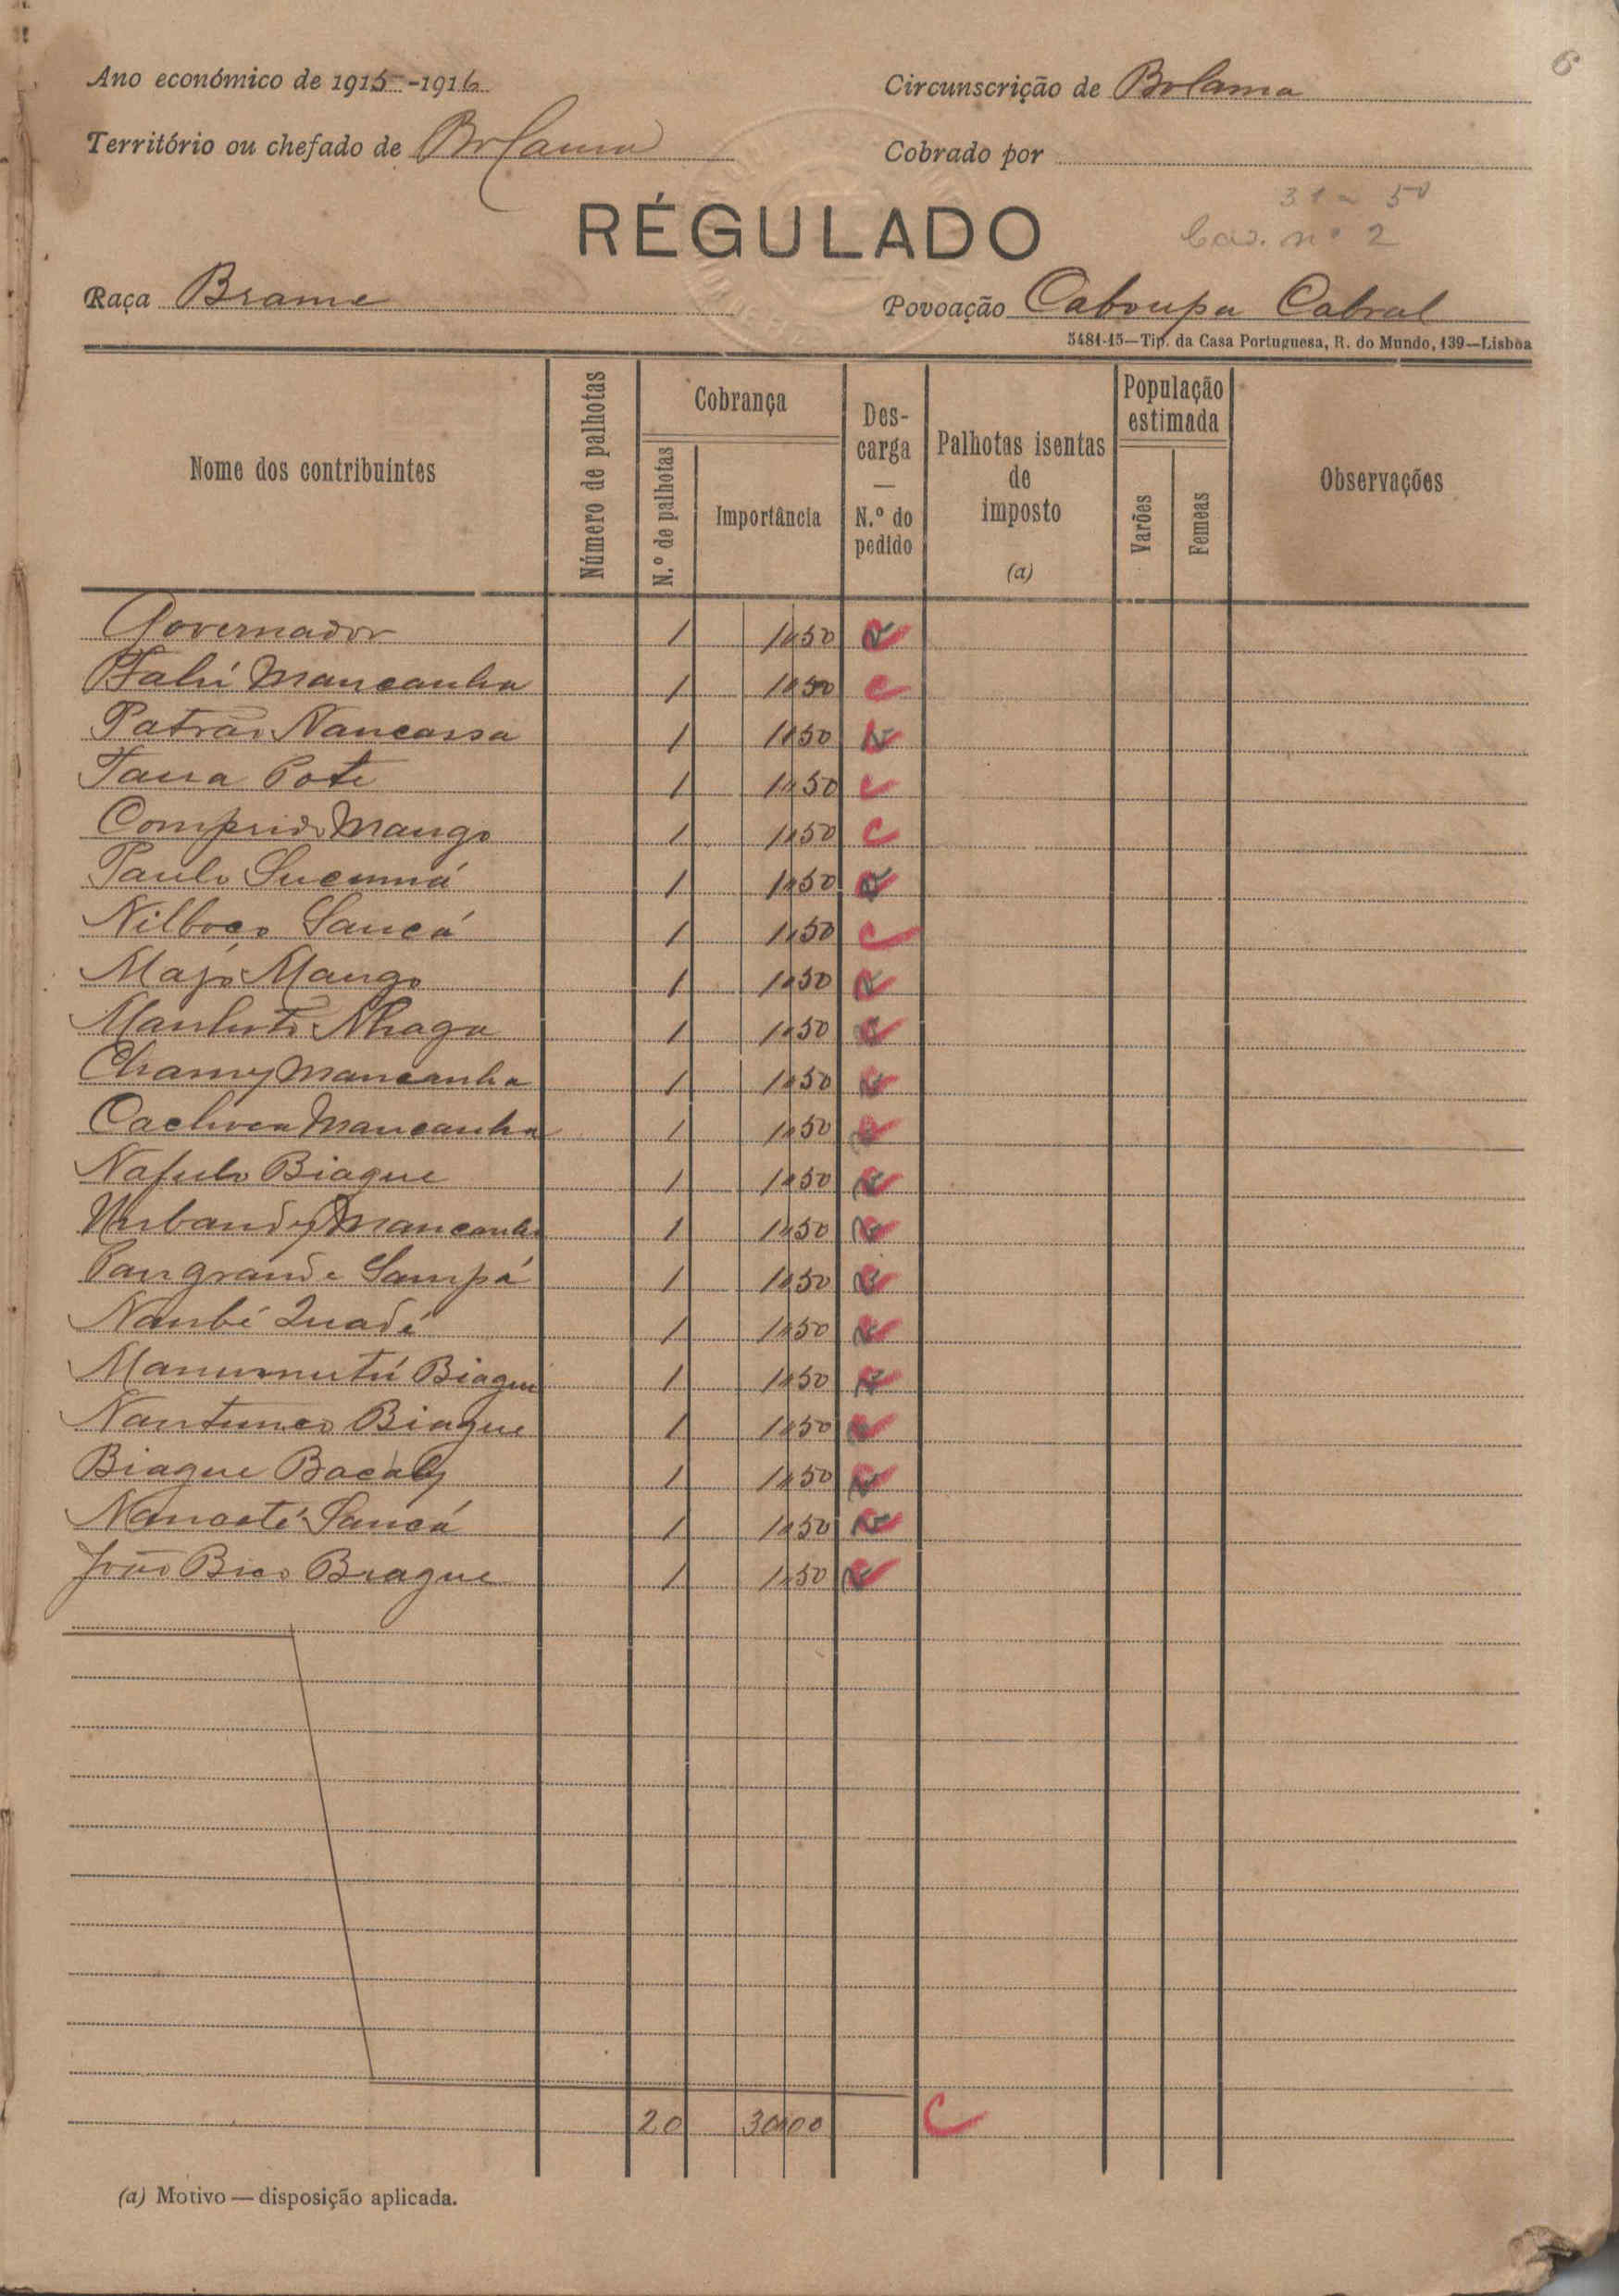 6
Ano económico de 1915-1916
Circunscrição de Bolama
Território ou chefado de Bolama
Cobrado por
31 a 50
Cad. nº 2
RÉGULADO
Raça Brame
Povoação Caboupa Cabral
5481-15—Tip. da Casa Portuguesa, R. do Mundo, 139—Lisbôa
Nome dos contribuintes
Número de palhotas
Cobrança
N.º de palhotas
Importância
Des-
carga
—
N.º do
pedido
Palhotas isentas
de
imposto
(a)
População
estimada
Varões
Femeas
Observações
Governador 1 1$50 C
Falú Mancanha 1 1$50 C
Patrão Nancassa 1 1$50 C
Pote 1 1$50 C
Comprido Mango 1 1$50 C
Paulo Sucumá 1 1$50 C
Nilboco Sancá 1 1$50 C
Majo Mango 1 1$50 C
Nhaga 1 1$50 C
Chamy Mancanha 1 1$50 C
Cachoca Mancanha 1 1$50 C
Nafulo Biague 1 1$50 C
Mancanha 1 1$50 C
Pangrande Sampá 1 1$50 C
Nambé Quadé 1 1$50 C
Biague 1 1$50 C
Nantunco Biague 1 1$50 C
Biague Bacaly 1 1$50 C
Nanoaté Sancá 1 1$50 C
João Bico Biague 1 1$50 C
20 30$00 C
(a) Motivo — disposição aplicada.